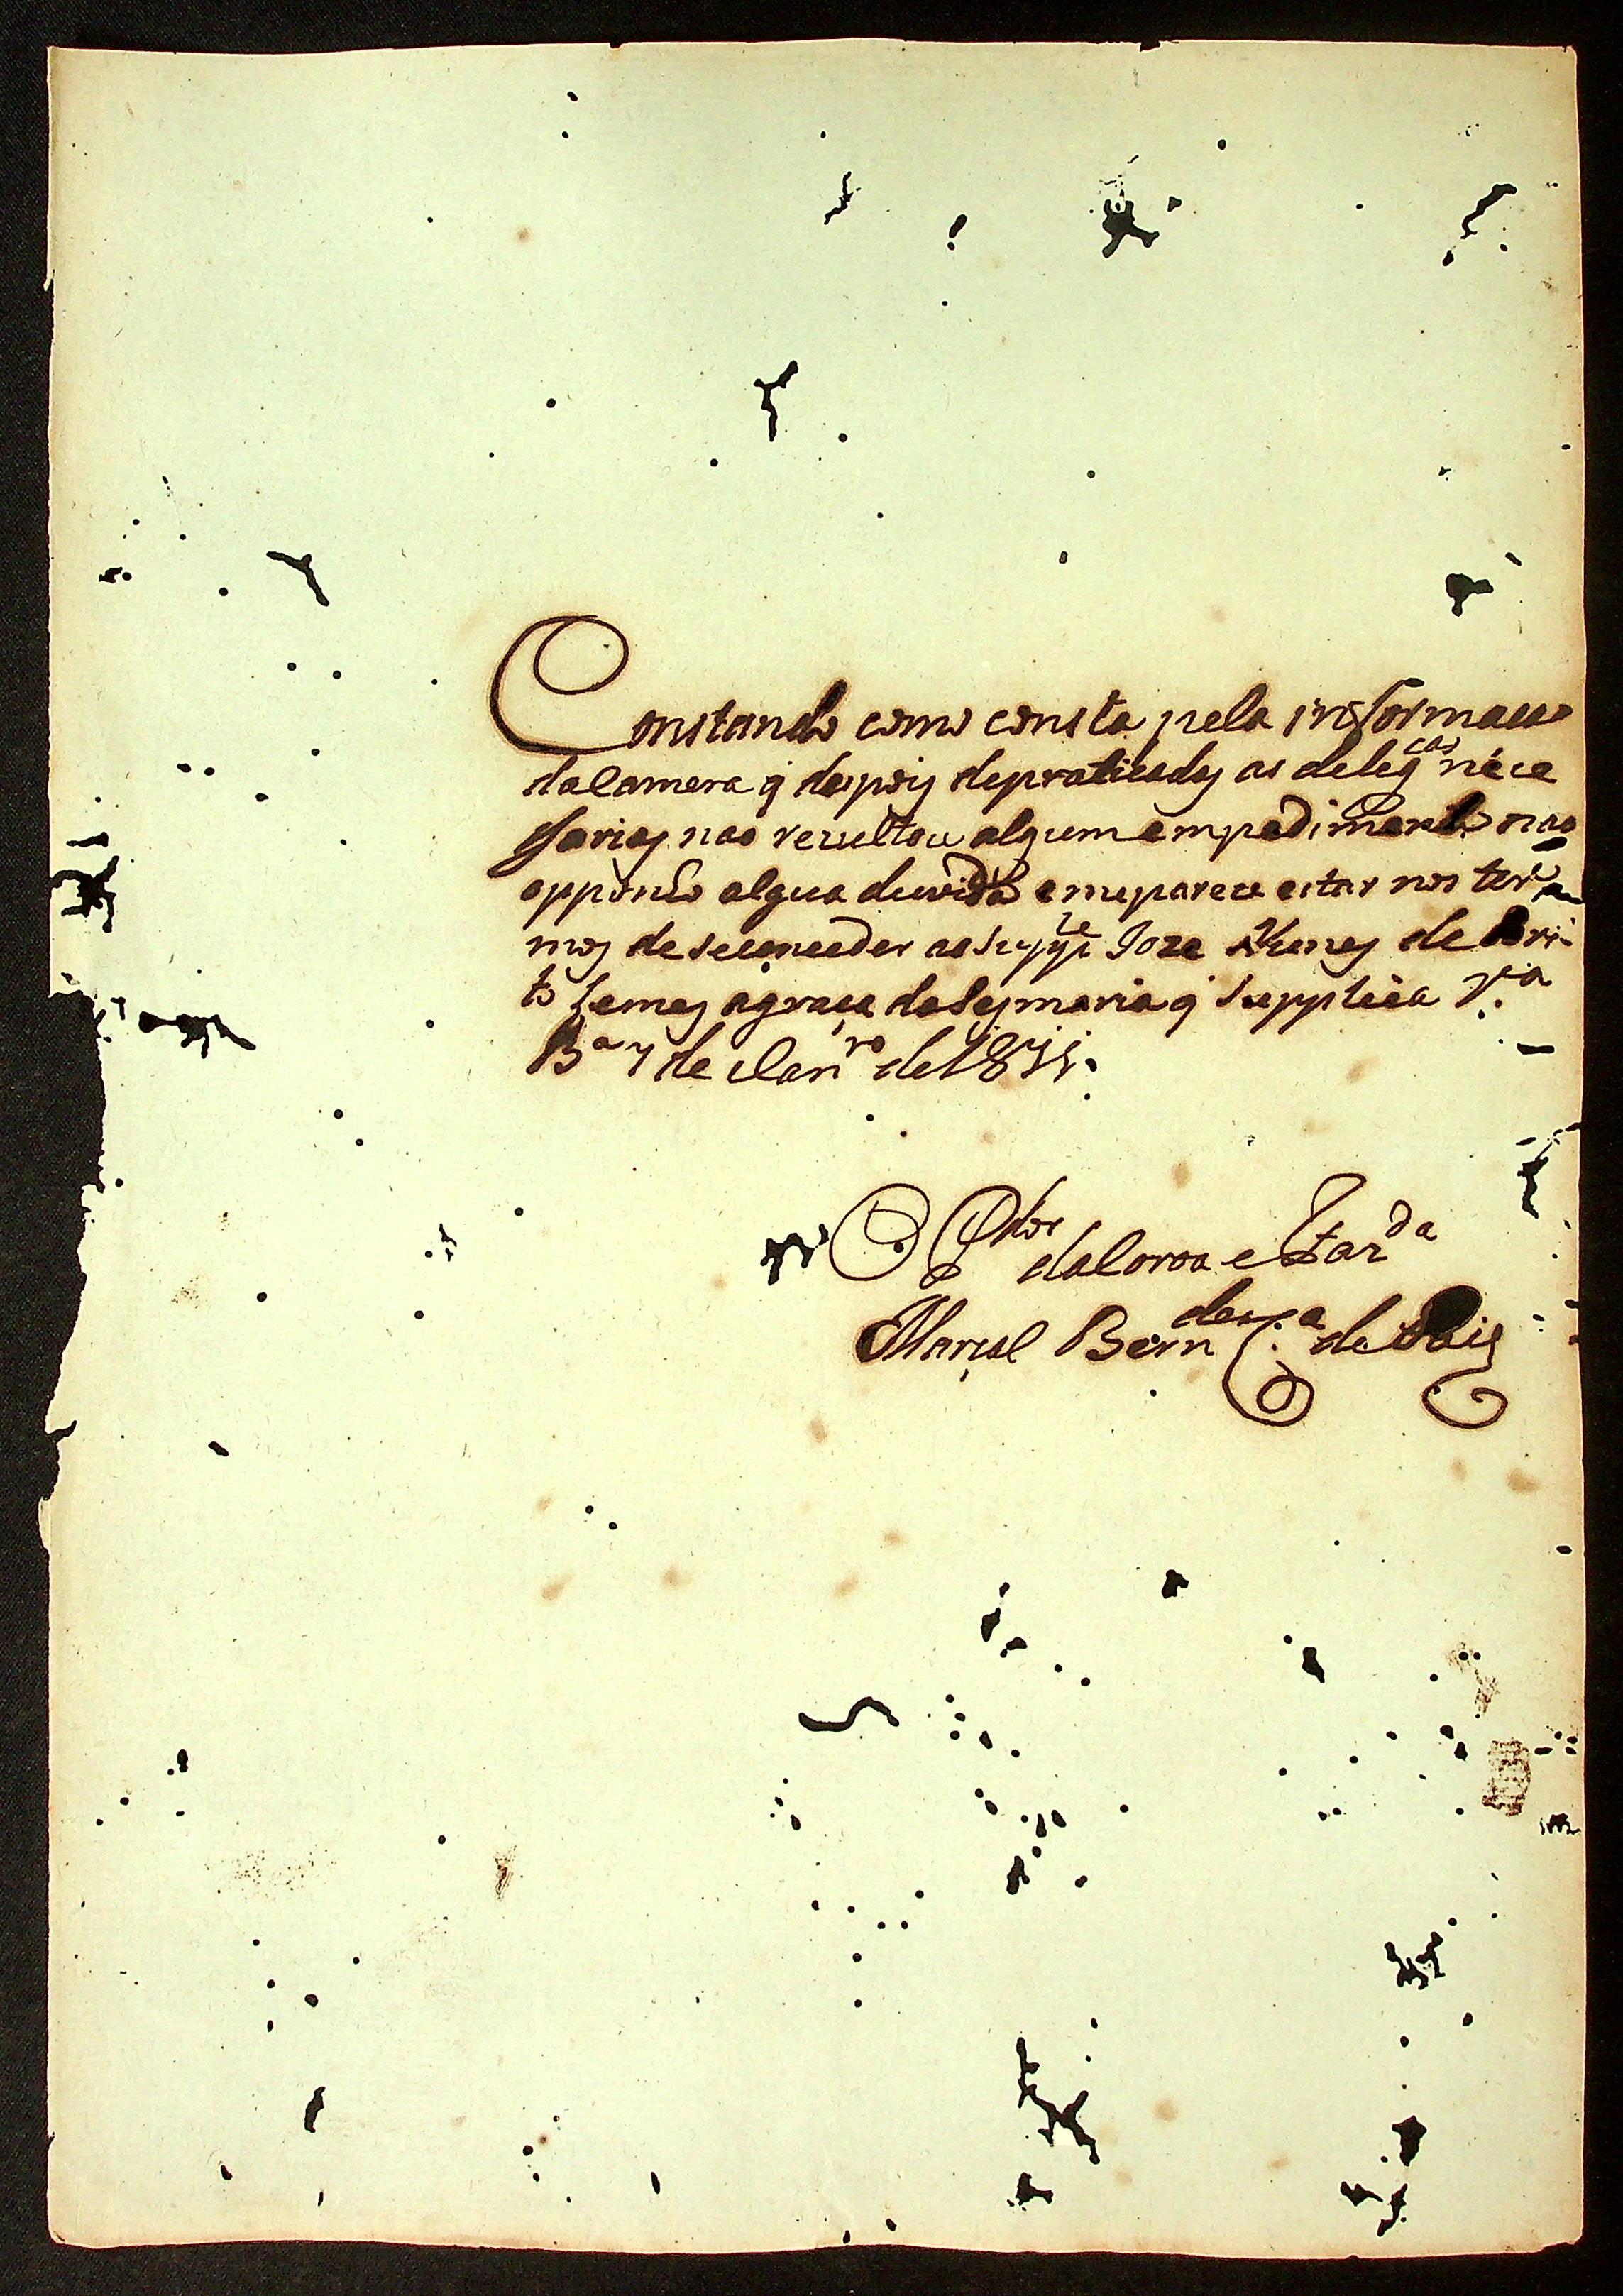 Constando como consta pela informacao
da Camera q̃ depois de praticadas as deleg.cas nece
ssarias nao rezultou algum empedimento nao
opponho algua duvida e me parece estar nos ter
mos de se conceder ao Supp.te Joze Nunes de Bri
to Lemos a graça da Sesmaria q̃ Supplica
B.a 7 de Jan.ro de 1811.
O P.dor da Coroa e Faz.da
Marçal Bern de